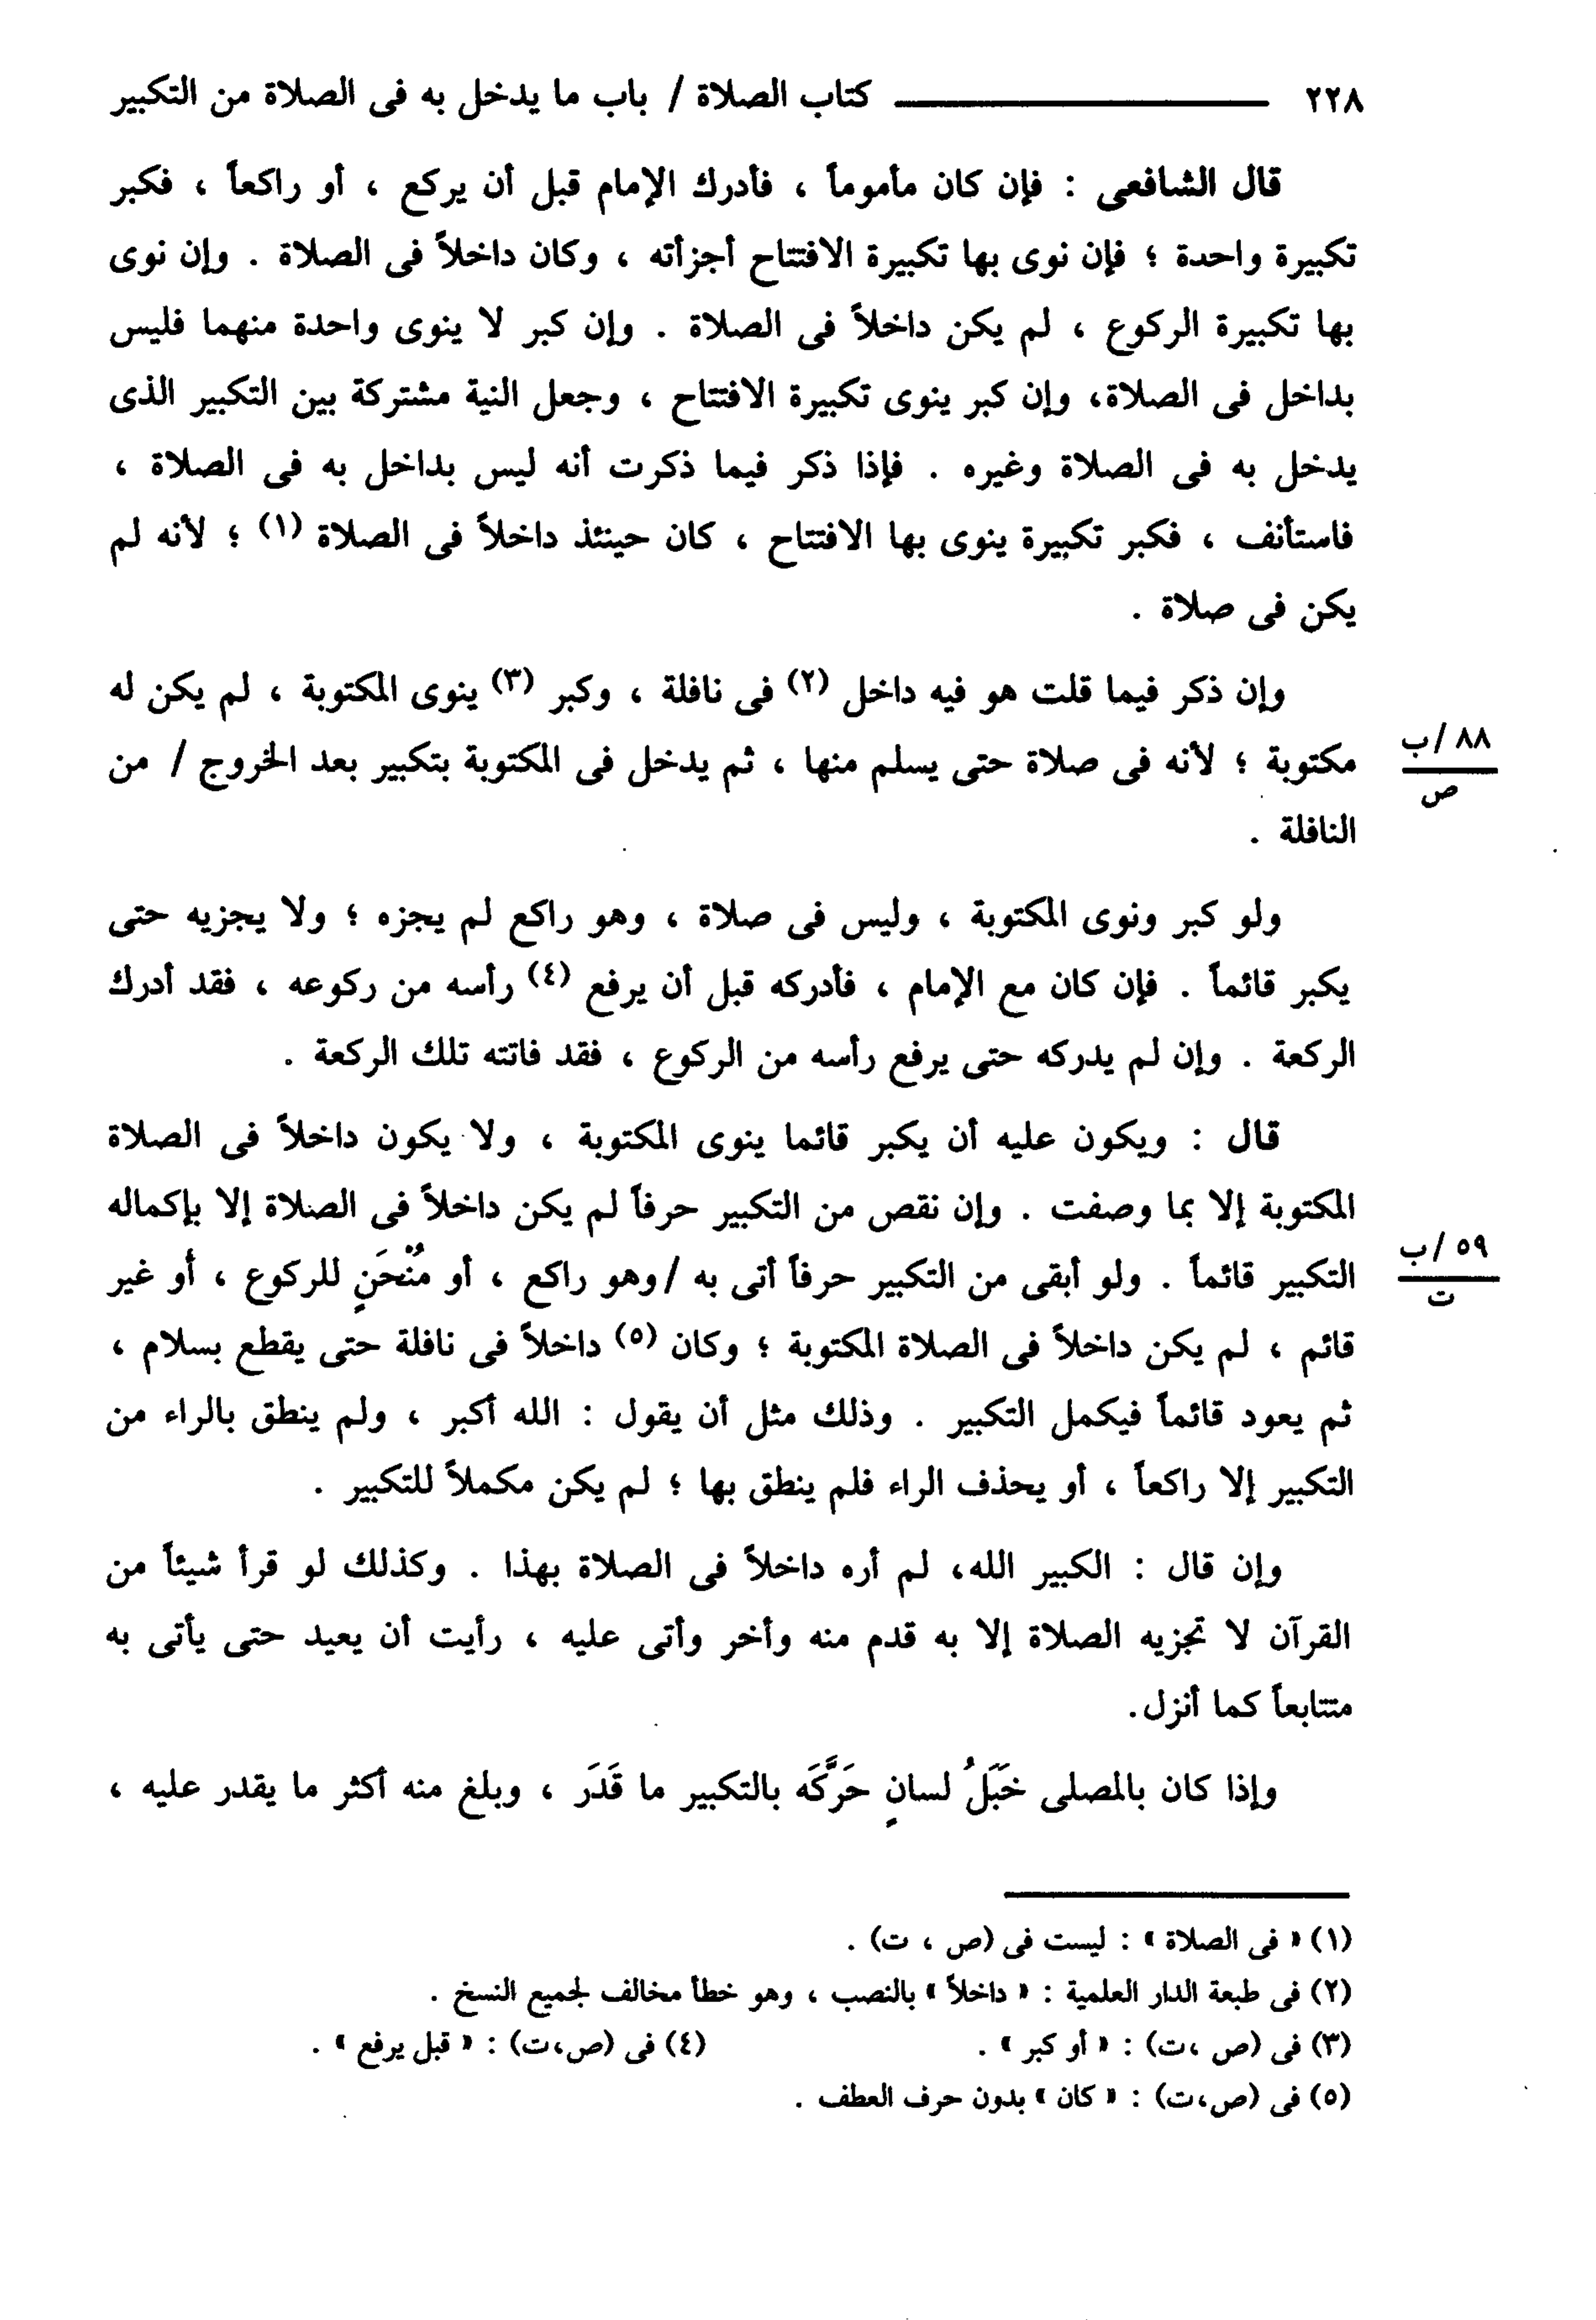 ٢٢٨ ــــــــ كتاب الصلاة / باب ما يدخل به فى الصلاة من التكبير
قال الشافعى : فإن كان مأموماً ، فأدرك الإمام قبل أن يركع ، أو راكعاً ، فكبر
تكبيرة واحدة ؛ فإن نوى بها تكبيرة الافتتاح أجزأته ، وكان داخلاً فى الصلاة . وإن نوى
بها تكبيرة الركوع ، لم يكن داخلاً فى الصلاة . وإن كبر لا ينوى واحدة منهما فليس
بداخل فى الصلاة، وإن كبر ينوى تكبيرة الافتتاح ، وجعل النية مشتركة بين التكبير الذى
يدخل به فى الصلاة وغيره . فإذا ذكر فيما ذكرت أنه ليس بداخل به فى الصلاة ،
فاستأنف ، فكبر تكبيرة ينوى بها الافتتاح ، كان حينئذ داخلاً فى الصلاة (١) ؛ لأنه لم
يكن فى صلاة .
وإن ذكر فيما قلت هو فيه داخل (٢) فى نافلة ، وكبر (٣) ينوى المكتوبة ، لم يكن له
مكتوبة ؛ لأنه فى صلاة حتى يسلم منها ، ثم يدخل فى المكتوبة بتكبير بعد الخروج / من
٨٨ / ب
ص
النافلة .
ولو كبر ونوى المكتوبة ، وليس فى صلاة ، وهو راكع لم يجزه ؛ ولا يجزيه حتى
يكبر قائماً . فإن كان مع الإمام ، فأدركه قبل أن يرفع (٤) رأسه من ركوعه ، فقد أدرك
الركعة . وإن لم يدركه حتى يرفع رأسه من الركوع ، فقد فاتته تلك الركعة .
قال : ويكون عليه أن يكبر قائما ينوى المكتوبة ، ولا يكون داخلاً فى الصلاة
المكتوبة إلا بما وصفت . وإن نقص من التكبير حرفاً لم يكن داخلاً فى الصلاة إلا بإكماله
التكبير قائماً . ولو أبقى من التكبير حرفاً أتى به / وهو راكع ، أو مُنْحَنٍ للركوع ، أو غير
٥٩ / ب
ت
قائم ، لم يكن داخلاً فى الصلاة المكتوبة ؛ وكان (٥) داخلاً فى نافلة حتى يقطع بسلام ،
ثم يعود قائماً فيكمل التكبير . وذلك مثل أن يقول : الله أكبر ، ولم ينطق بالراء من
التكبير إلا راكعاً ، أو يحذف الراء فلم ينطق بها ؛ لم يكن مكملاً للتكبير .
وإن قال : الكبير الله، لم أره داخلاً فى الصلاة بهذا . وكذلك لو قرأ شيئاً من
القرآن لا تجزيه الصلاة إلا به قدم منه وأخر وأتى عليه ، رأيت أن يعيد حتى يأتى به
متتابعاً كما أنزل.
وإذا كان بالمصلى خَبَلُ لسانٍ حَرَّكَه بالتكبير ما قَدَر ، وبلغ منه أكثر ما يقدر عليه ،
(١) « فى الصلاة » : ليست فى (ص ، ت) .
(٢) فى طبعة الدار العلمية : « داخلاً » بالنصب ، وهو خطأ مخالف لجميع النسخ .
(٣) فى (ص ،ت) : « أو كبر » . (٤) فى (ص،ت) : « قبل يرفع » .
(٥) فى (ص،ت) : « كان » بدون حرف العطف .